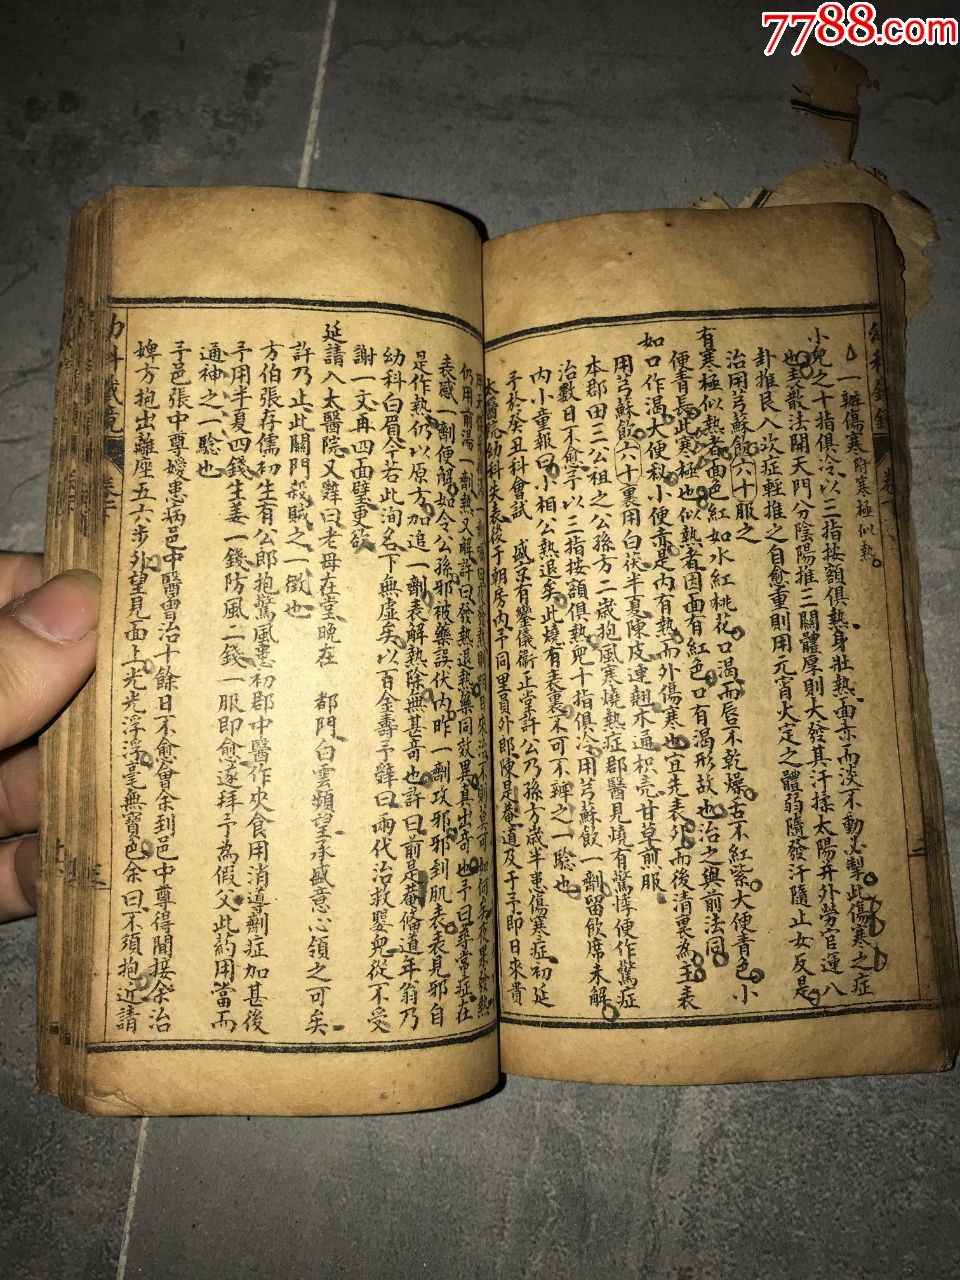 7788.com
一辨傷寒附寒極似熱
小兒之十指俱冷以三指按額俱熱身壯熱面赤而淡不動又掣此傷寒之症
也主散法開天門分陰陽推三關體厚則大發其汗揉太陽并外勞宮運八
卦推艮八次症輕推之自愈重則用元宵火定之體弱隨發汗隨止女反是
治用芎蘇飲六十服之
有寒極似熱者面色紅如水紅桃花口渴而唇不乾燥舌不紅紫大便青色小
便青長此寒極也似熱者因面有紅色口有渴形故也治之與前法同
如口作渴大便秘小便赤是內有熱而外傷寒也宜先表外而後清裏為主表
用芎蘇飲六十裏用白茯半夏陳皮連翹木通枳壳甘草前服
本郡田三公祖之公孫方二歲抱風寒燒熱症郡醫見燒有驚悸便作驚症
治數日不愈字以三指按額俱熱兒十指俱冷用芎蘇飲一劑留飲席未解
內小童報曰小相公熱退矣此燒有表裏不可不辨之一驗也
予於癸丑科會試 盛京有鑾儀衛正堂許公乃孫方歲半患傷寒症初延
太醫院幼科夫表後于朝房內予同里員外郎陳是菴道及于予即日來貴
仍用前湯一劑熱又解許曰發熱退熱藥同效異真出奇也予曰尋常症在
表感一劑便解如令公孫邪被藥誤伏內昨一劑攻邪邪到肌表表見邪自
是作熱仍以原方加追一劑表解熱除無甚奇也許曰前是菴脩道年翁乃
幼科白眉今若此洵名下無虛矣以百金壽予辭曰兩代治救嬰兒從不受
謝一文再四面璧更欲
延請入太醫院又辭曰老母在堂晚在 都門白雲頻望承盛意心領之可矣
許乃止此關門殺賊之一徵也
方伯張存儒初生有公郎抱驚風患初郡中醫作夾食用消導劑症加甚後
予用半夏四錢生姜一錢防風二錢一服即愈遂拜予為假父此約用當而
通神之一驗也
予邑張中尊嬡患病邑中醫曾治十餘日不愈會余到邑中尊得間接余治
婢方抱出離座五六步外望見面上光光浮浮毫無寶色余曰不須抱近請
幼科鐵鏡